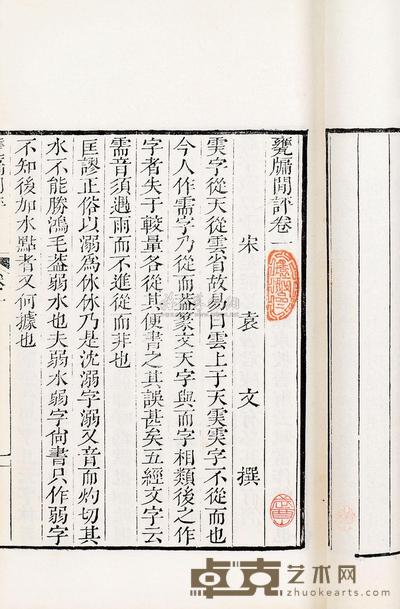 甕牖閒評卷一
宋 袁文 撰
需字從天從雲省故易曰雲上于天需需字不從而也
今人作需字乃從而葢篆文天字與而字相類後之作
字者失于較量各從其便書之其誤甚矣五經文字云
需音須遇雨而不進從而非也
匡謬正俗以溺為休休乃是沈溺字溺又音而灼切其
水不能勝鴻毛葢弱水也夫弱水弱字尙書只作弱字
不知後加水點者又何據也
卓克艺术网
www.zhuokearts.com